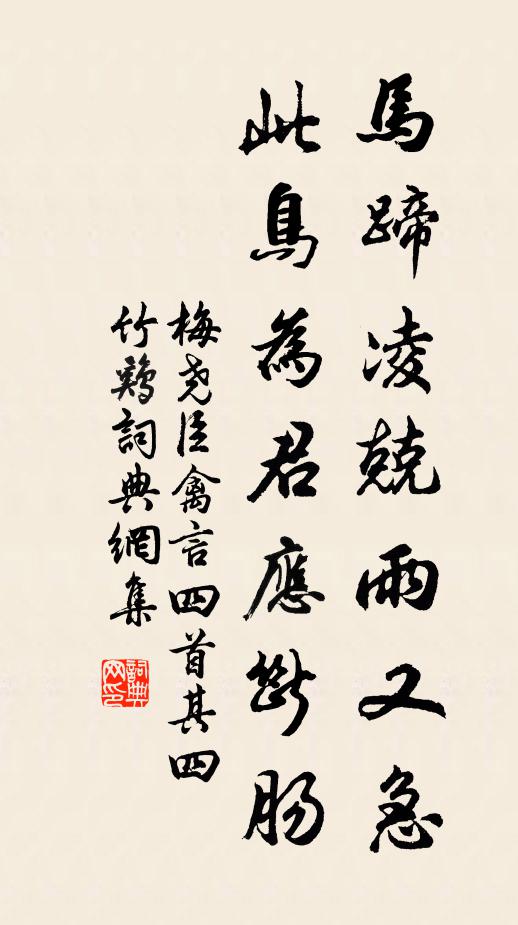 馬蹄凌兢雨又急
此鳥為君應斷腸
梅堯臣禽言四首其四
竹鷄詞典網集
詞典
网印